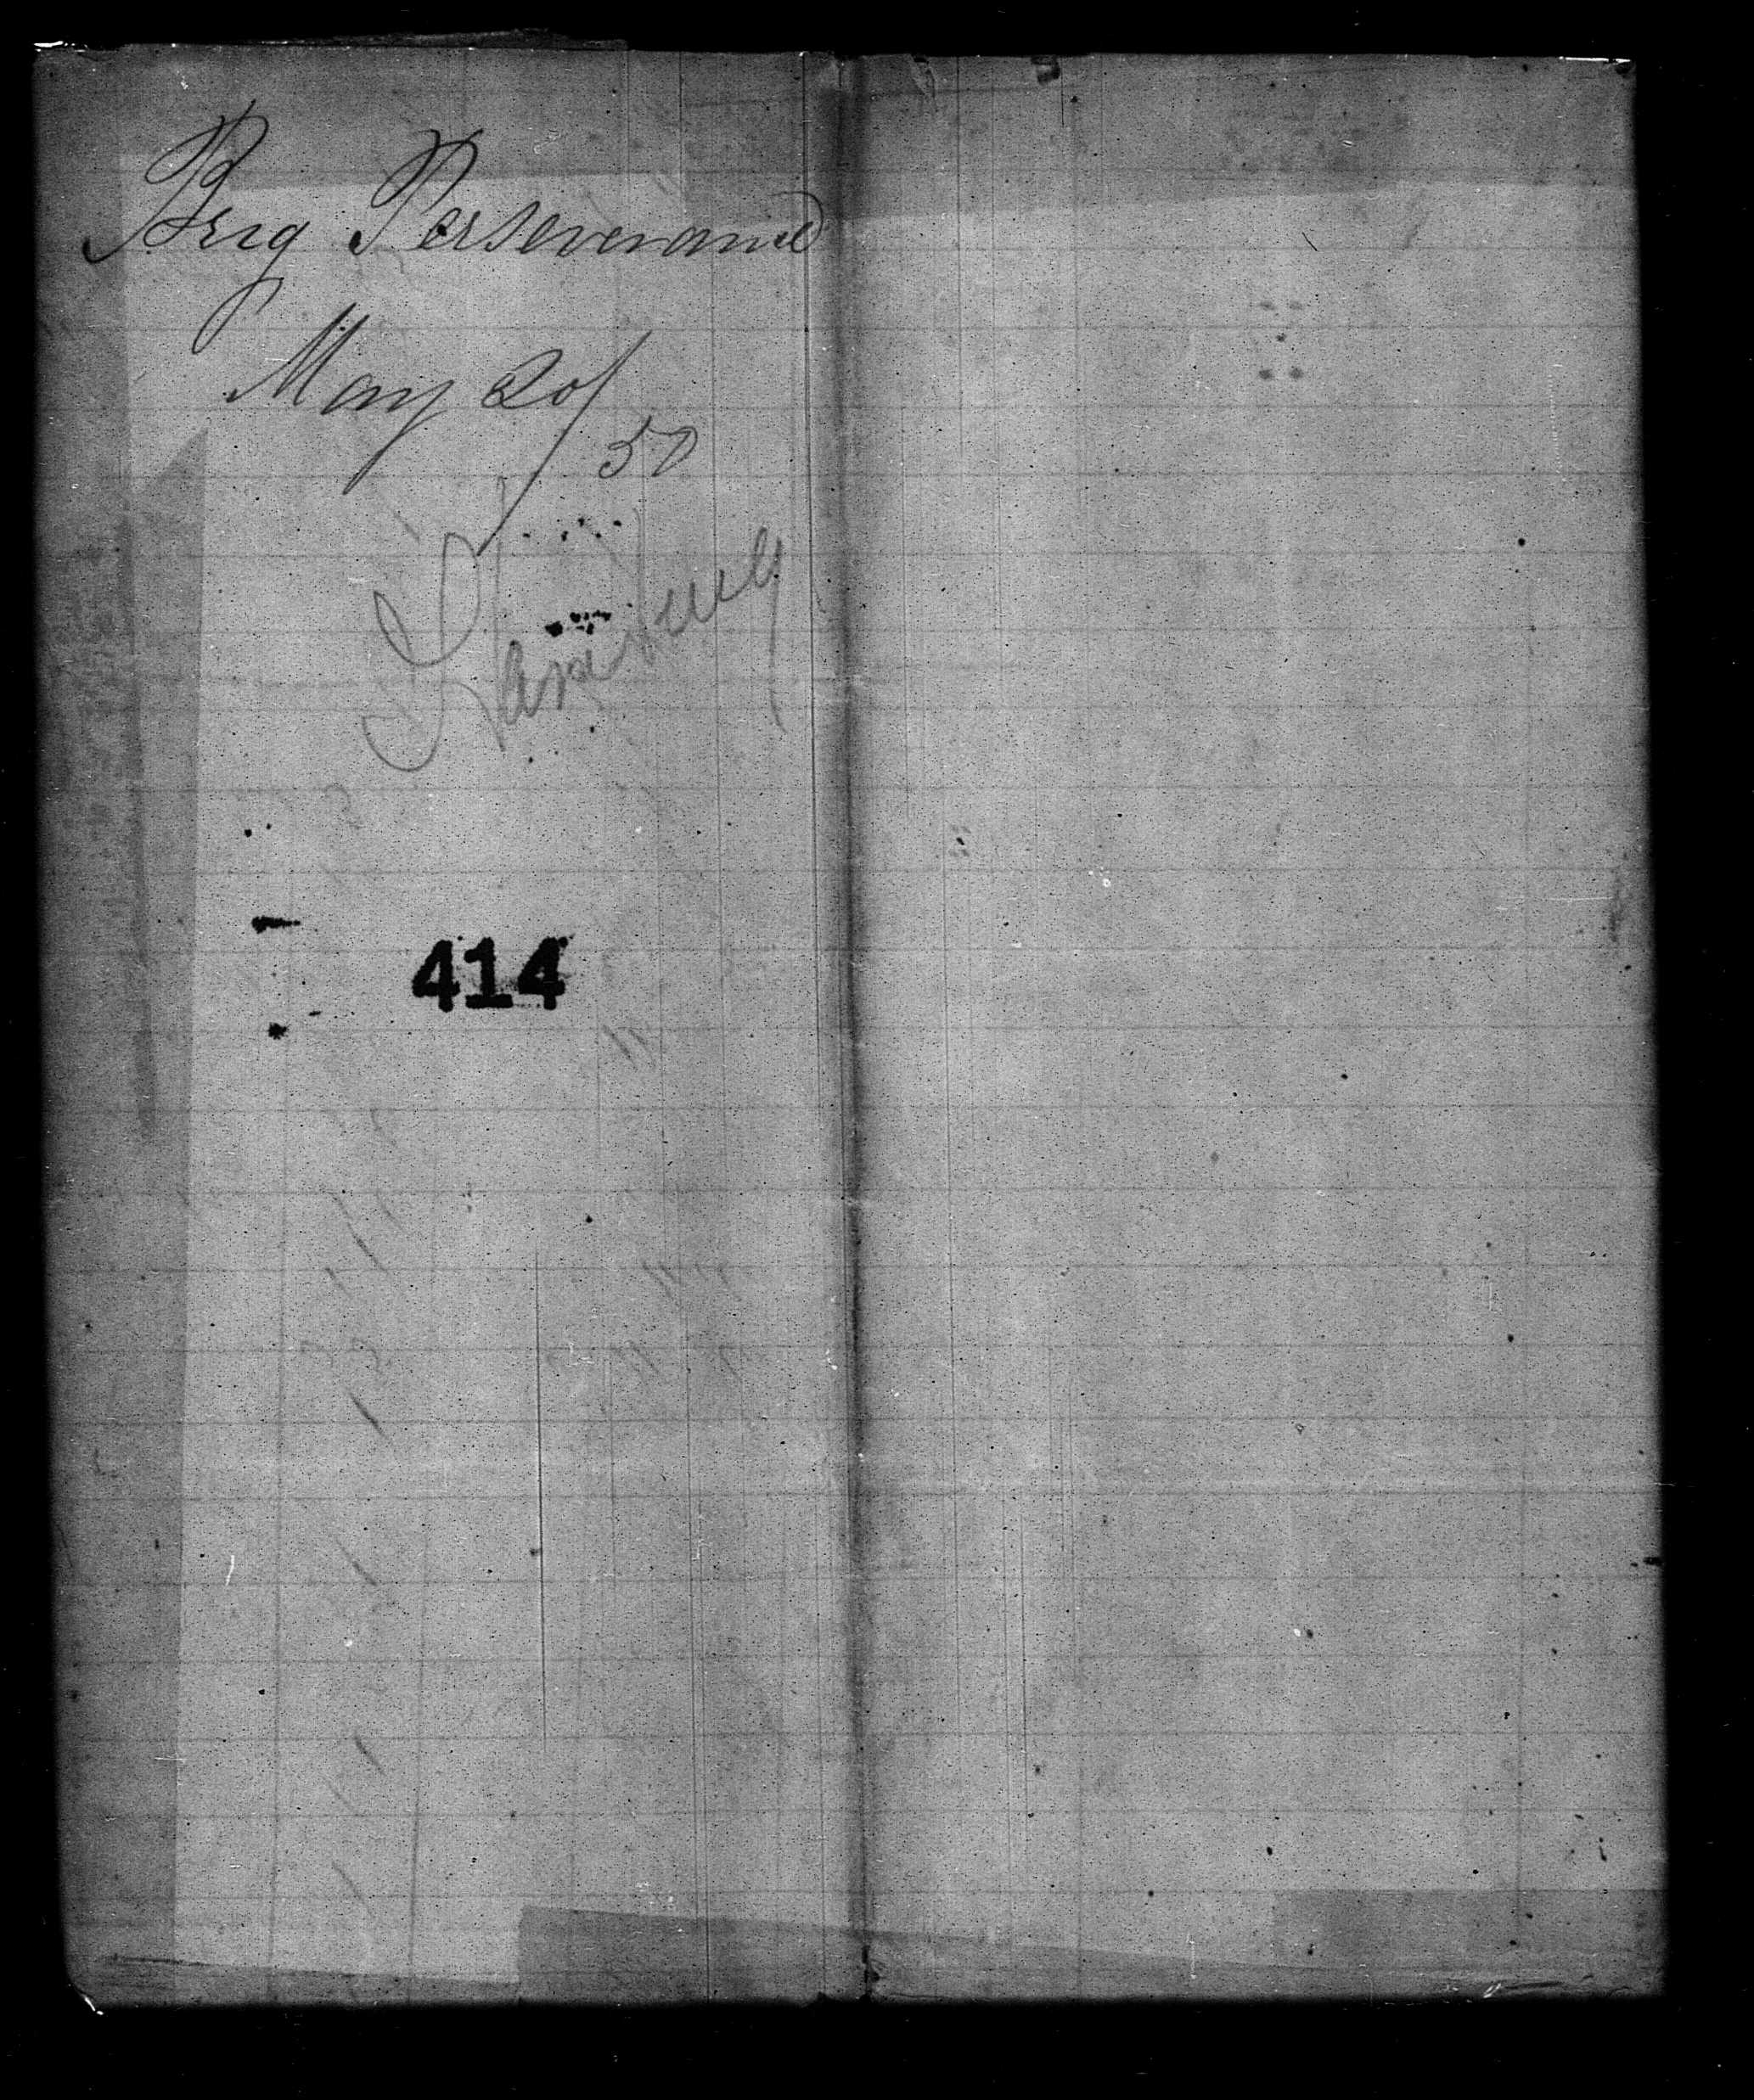 Brig Perseverance
May 20/50
Hamburg
414